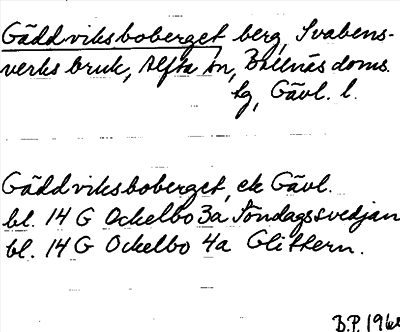 Gäddviksboberget berg, Svabens-
verks bruk, Alfta sn, Bollnäs doms.
tg, Gävl. l.
Gäddviksboberget, ek Gävl.
bl. 14 G Ockelbo 3a Söndagssvedjan
bl. 14 G Ockelbo 4a Glittern.
B.P. 196